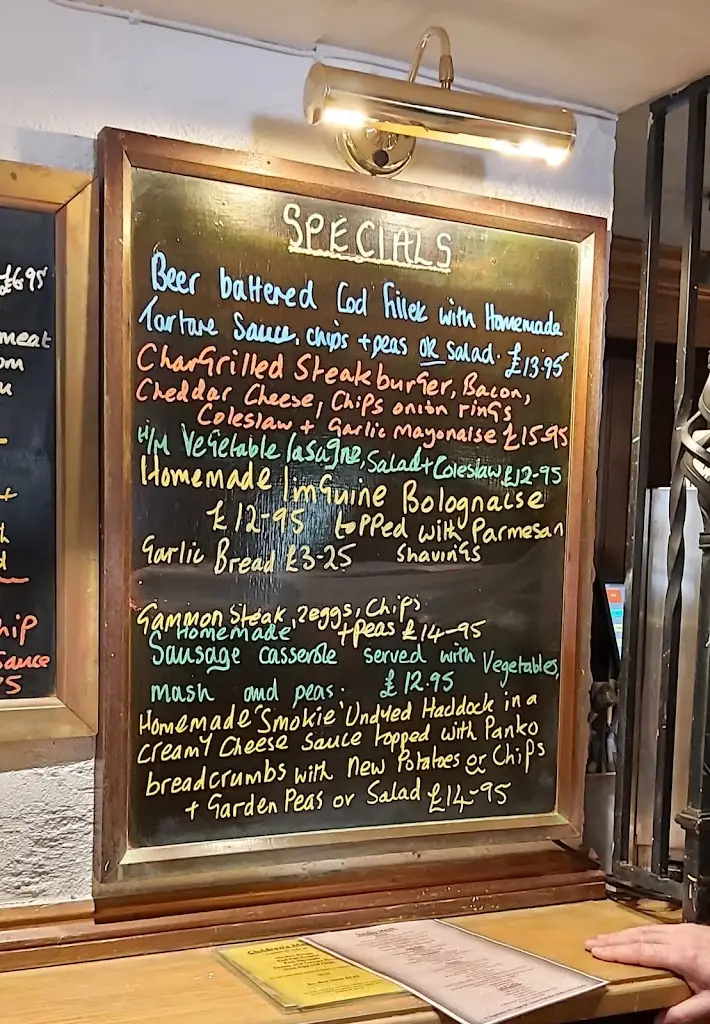 £6.95
meat
+
hip
Sauce
SPECIALS
Beer battered Cod fillet with Homemade
Tartare Sauce, chips + peas OR Salad. £13.95
CharGrilled Steakburger, Bacon,
Cheddar Cheese, Chips onion rings
Coleslaw + Garlic Mayonaise £15-95
H/M Vegetable lasagne, Salad + Coleslaw £12-95
Homemade linguine Bolognaise
£12-95 topped with Parmesan
Garlic Bread £3-25 Shavings
Gammon Steak, 2eggs, Chips
Homemade +peas £14-95
Sausage casserole served with Vegetables,
mash and peas. £12.95
Homemade 'Smokie' Undyed Haddock in a
creamy Cheese Sauce topped with Panko
breadcrumbs with New Potatoes or Chips
+ Garden Peas or Salad £14-95
Children's